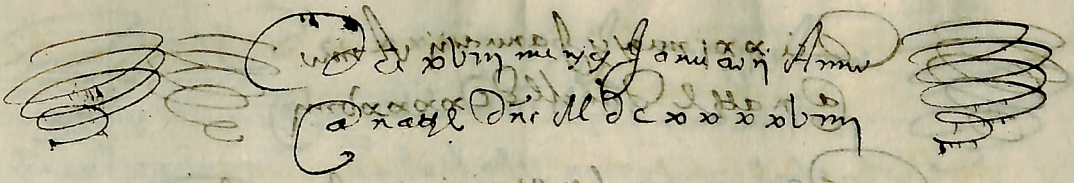 Die xviii mensis Januarii Anno
a natle dni M dc xxxxviiii